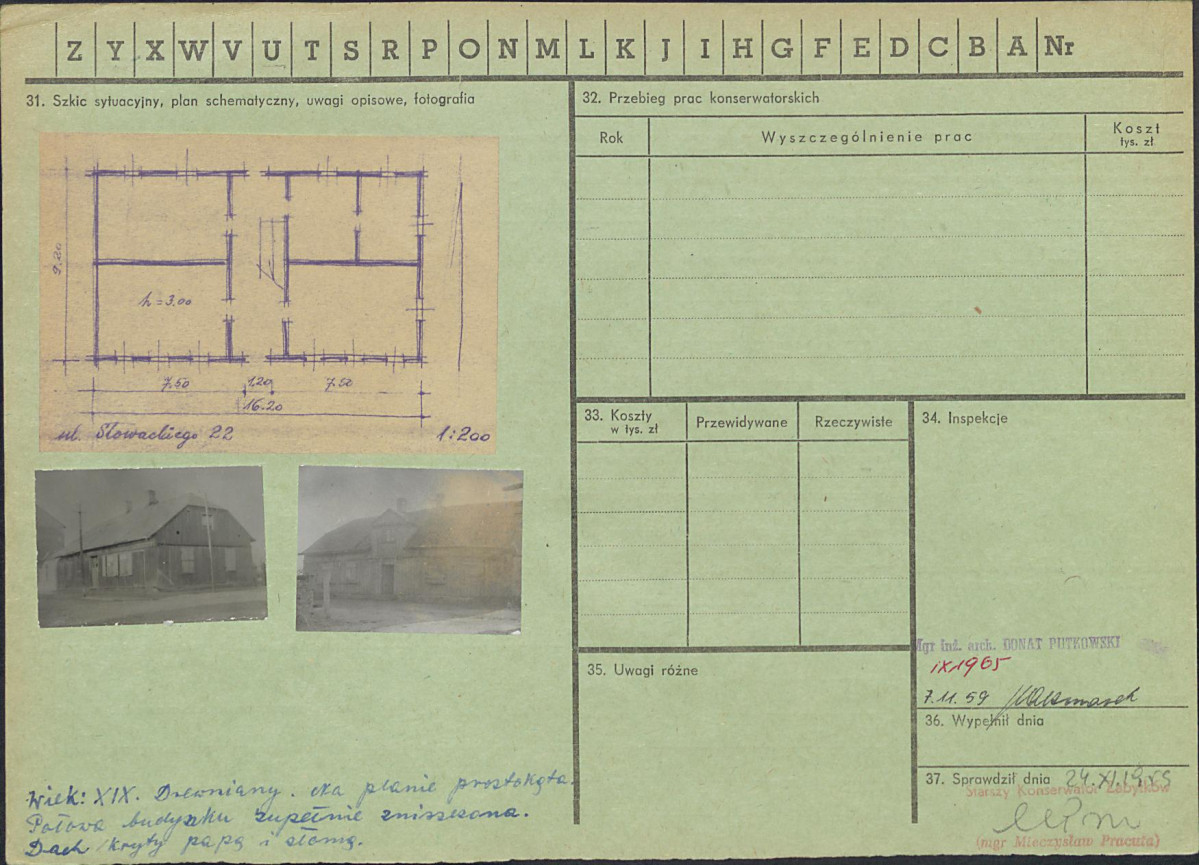 Z Y X W V U T S R P O N M L K J I H G F E D C B A Nr
31. Szkic sytuacyjny, plan schematyczny, uwagi opisowe, fotografia
9.20
h = 3.00
7.50 1.20 7.50
16.20
ul. Słowackiego 22 1:200
Wiek: XIX. Drewniany. Na planie prostokąta.
Połowa budynku zupełnie zniszczona.
Dach kryty papą i słomą.
32. Przebieg prac konserwatorskich
Rok Wyszczególnienie prac Koszt
tys. zł
33. Koszty
w tys. zł
Przewidywane Rzeczywiste
34. Inspekcje
Mgr inż. arch. DONAT PUTKOWSKI
IX 1965
7.11.59
35. Uwagi różne
36. Wypełnił dnia
37. Sprawdził dnia 24.XI.1959
Starszy Konserwator Zabytków
(mgr Mieczysław Pracuta)